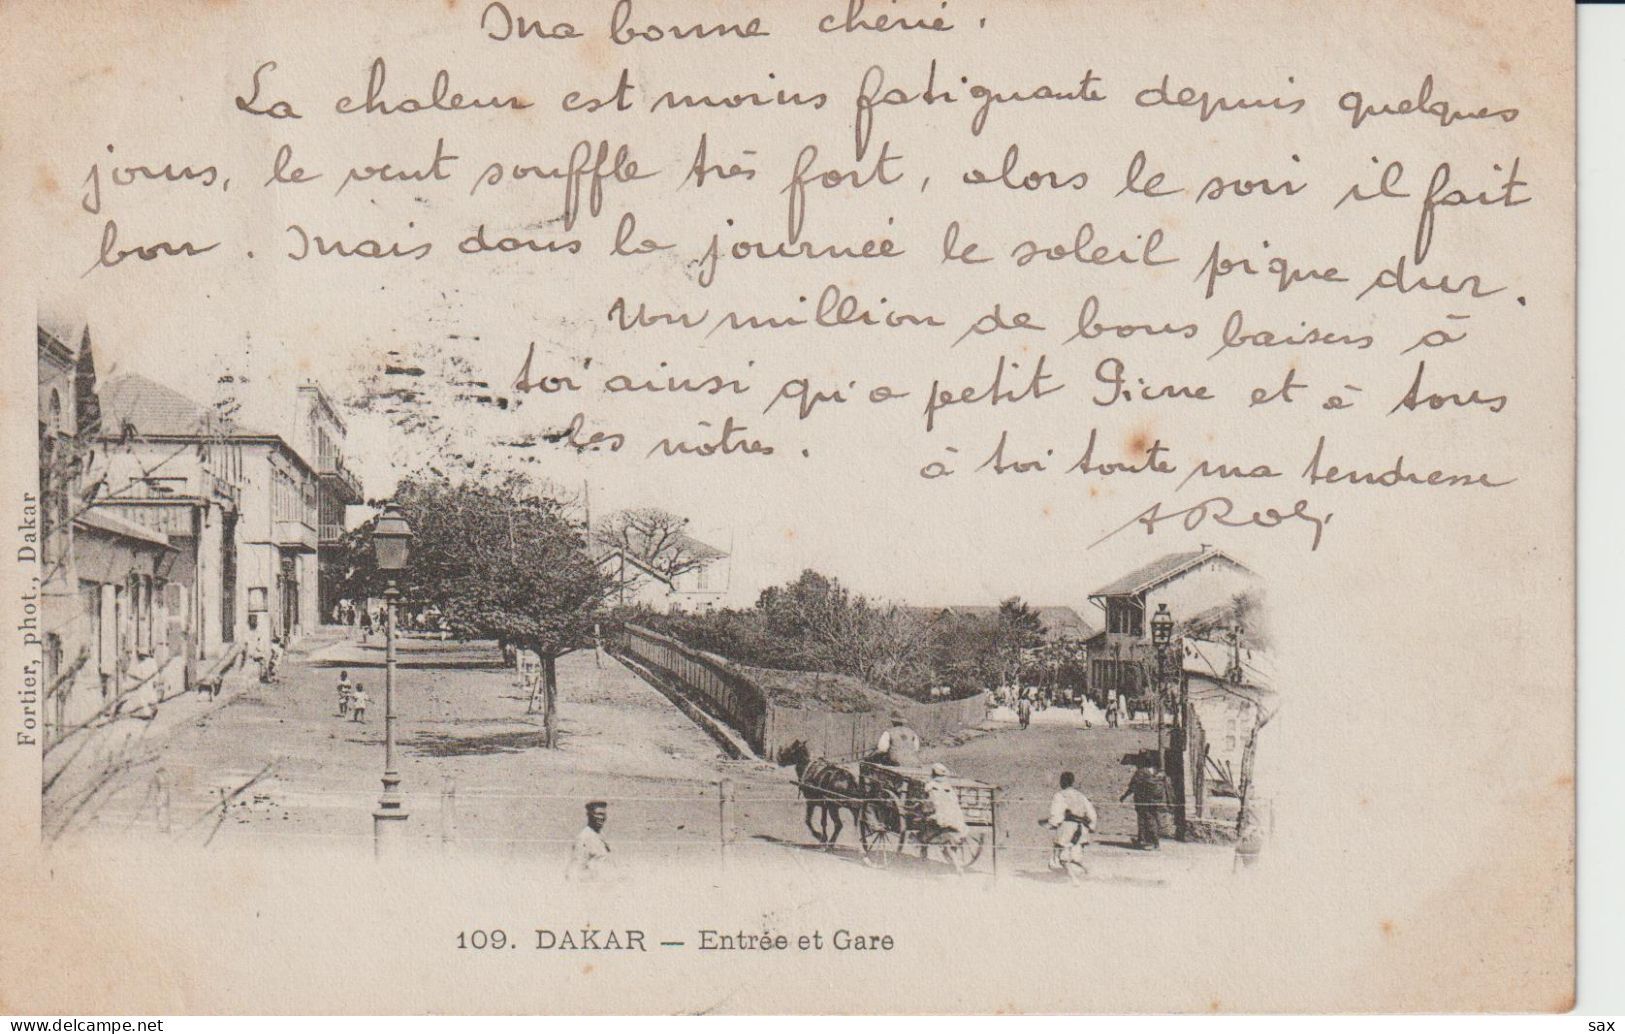 Ma bonne chérie.
La chaleur est moins fatiguante depuis quelques
jours, le vent souffle très fort, alors le soir il fait
bon. Mais dans la journée le soleil pique dur.
Un million de bons baisers à
toi ainsi qu'a petit Pierre et à tous
les nôtres.
à toi toute ma tendresse
Fortier, phot., Dakar
109. DAKAR — Entrée et Gare
www.delcampe.net
sax